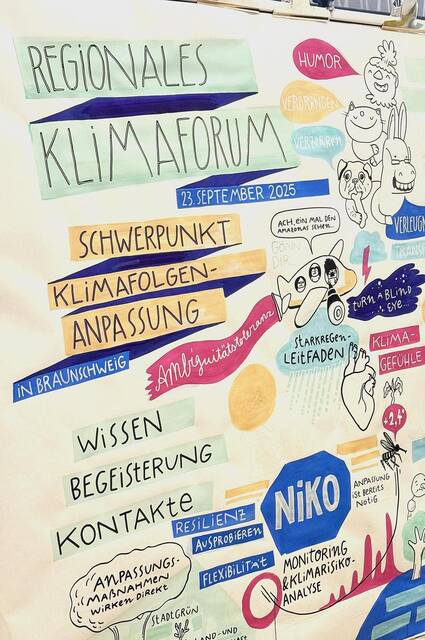 REGIONALES
KLIMAFORUM
23. SEPTEMBER 2025
SCHWERPUNKT
KLIMAFOLGEN-
ANPASSUNG
IN BRAUNSCHWEIG
HUMOR
VERBRÄNDEN
VERZERREN
ACH, EIN MAL DEN
AMAZONAS SEHEN...
GÖNN
DIR
TURN A BLIND
EYE
Ambiguitätstoleranz
STARKREGEN-
LEITFADEN
KLIMA-
GEFÜHLE
+2,4°
WISSEN
BEGEISTERUNG
KONTAKTE
NiKO
RESILIENZ
AUSPROBIEREN
FLEXIBILITÄT
ANPASSUNG
IST BEREITS
NÖTIG
MONITORING
& KLIMARISIKO-
ANALYSE
ANPASSUNGS-
MAßNAHMEN
WIRKEN DIREKT
STADTGRÜN
LAND- UND